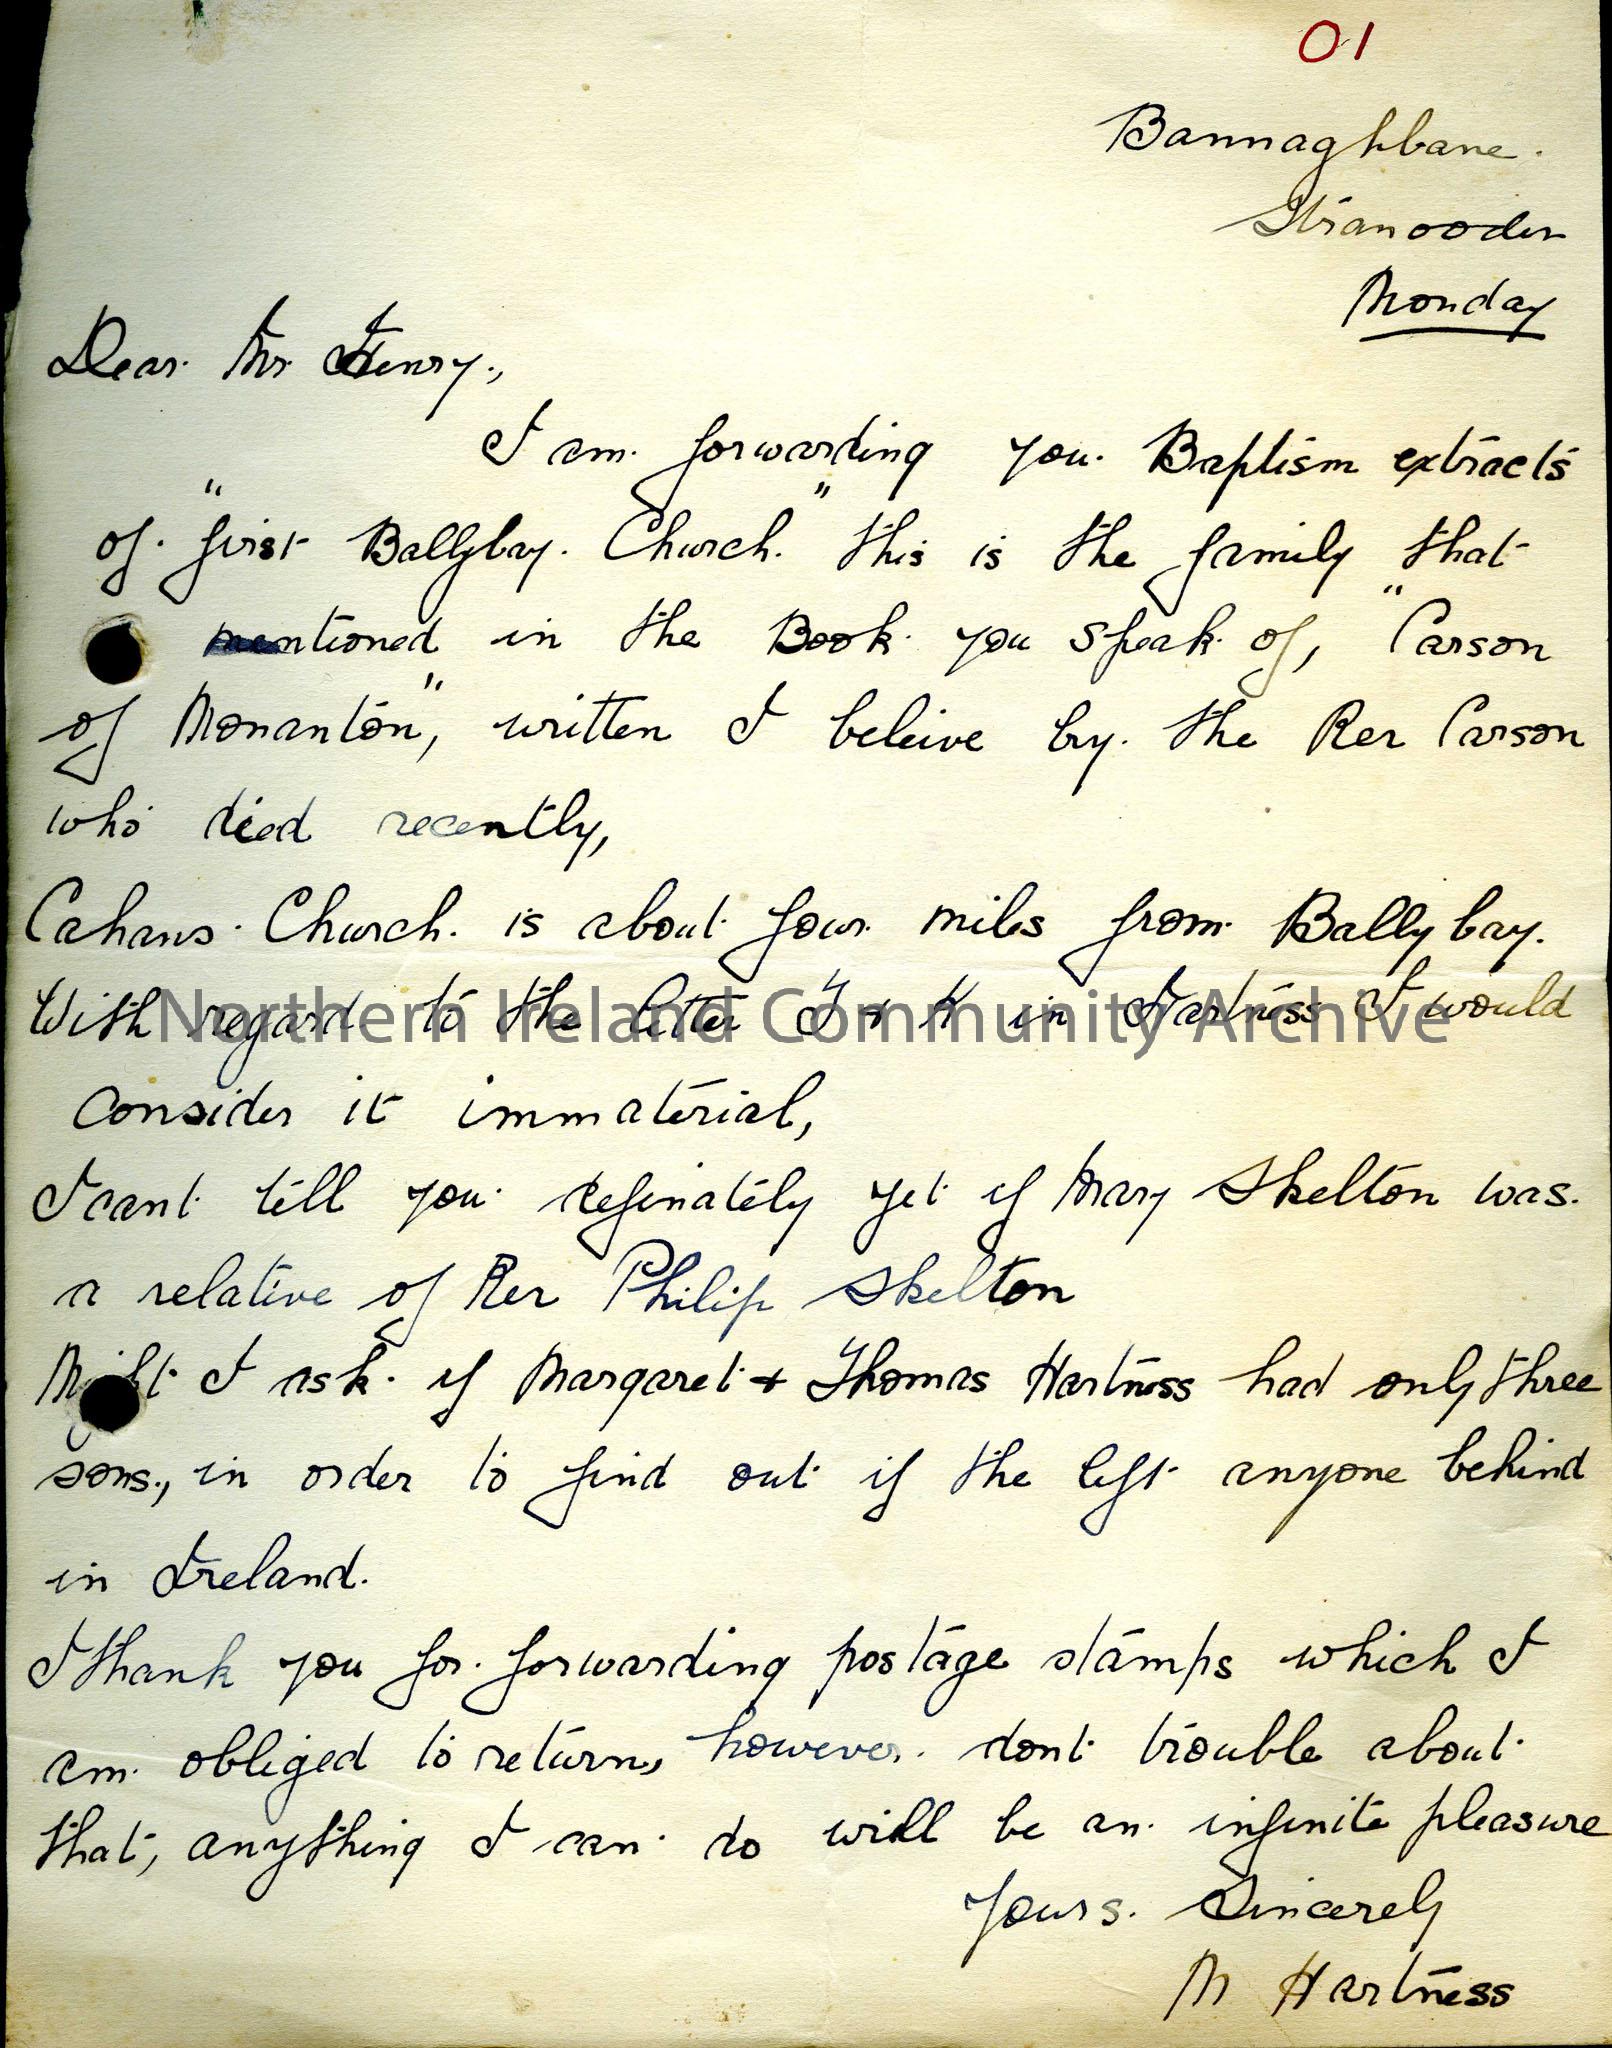 01
Bannaghbane.
Stranooden
Monday
Dear. Mr. Henry.,
I am. forwarding you. Baptism extracts
of. "first Ballybay. Church." this is the family that
mentioned in the Book. you speak. of, "Carson
of Monanton", written I beleive by. the Rev Carson
who died recently,
Cahans. Church. is about four. miles from. Ballybay.
With regard to the letter T + H in Hartness I would
Northern Ireland Community Archive
consider it immaterial,
I cant tell you. definately yet if Mary Skelton was.
a relative of Rev Philip Skelton
I ask. if Margaret + Thomas Hartness had only three
sons., in order to find out if the left anyone behind
in Ireland.
I thank you for. forwarding postage stamps which I
am. obliged to return, however. dont trouble about
that, anything I can do will be an. infinite pleasure
Yours. Sincerely
M Hartness